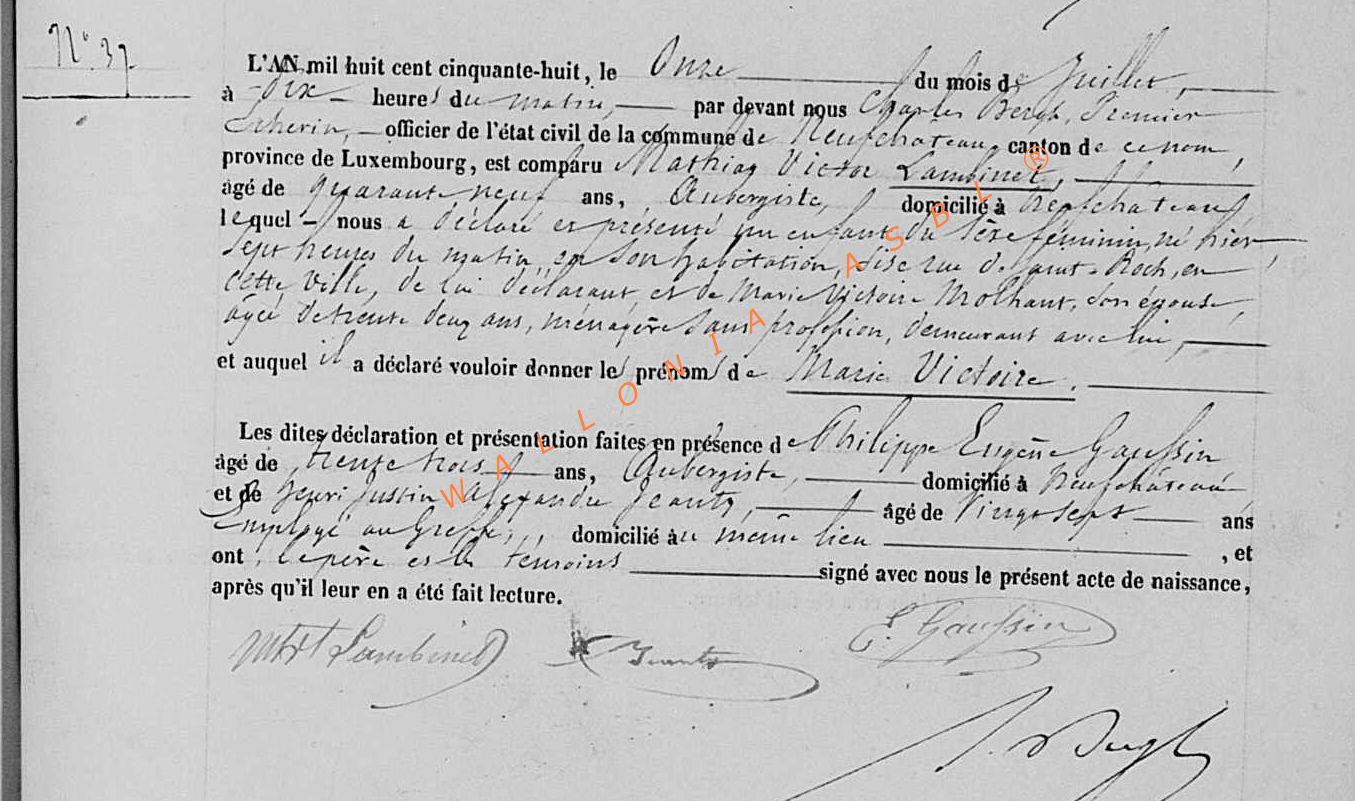 N° 37
L'AN mil huit cent cinquante-huit, le Onze du mois de Juillet,
à Dix heures du matin, par devant nous Charles Bergh, Premier
Echevin, officier de l'état civil de la commune de Neufchateau canton de ce nom,
province de Luxembourg, est comparu Mathias Victor Lambinet,
âgé de quarante neuf ans, Aubergiste, domicilié à Neufchateau,
lequel nous a déclaré et présenté un enfant du sexe féminin, né hier
sept heures du matin, en son habitation, sise rue de saint-Roch, en
cette ville, de lui déclarant, et de Marie Victoire Molhant, son épouse,
agée de trente deux ans, ménagère sans profession, demeurant avec lui,
et auquel il a déclaré vouloir donner les prénoms de Marie Victoire.
Les dites déclaration et présentation faites en présence de Philippe Eugène Gaussin
âgé de trente trois ans, Aubergiste, domicilié à Neufchâteau
et de Henri Justin Alexandre Jeanty, âgé de Vingt sept ans
Employé au Greffe, domicilié au même lieu, et
ont, le père et les temoins signé avec nous le présent acte de naissance,
après qu'il leur en a été fait lecture.
Lambinet Jeanty E. Gaussin
WALLONIA ASBL ®